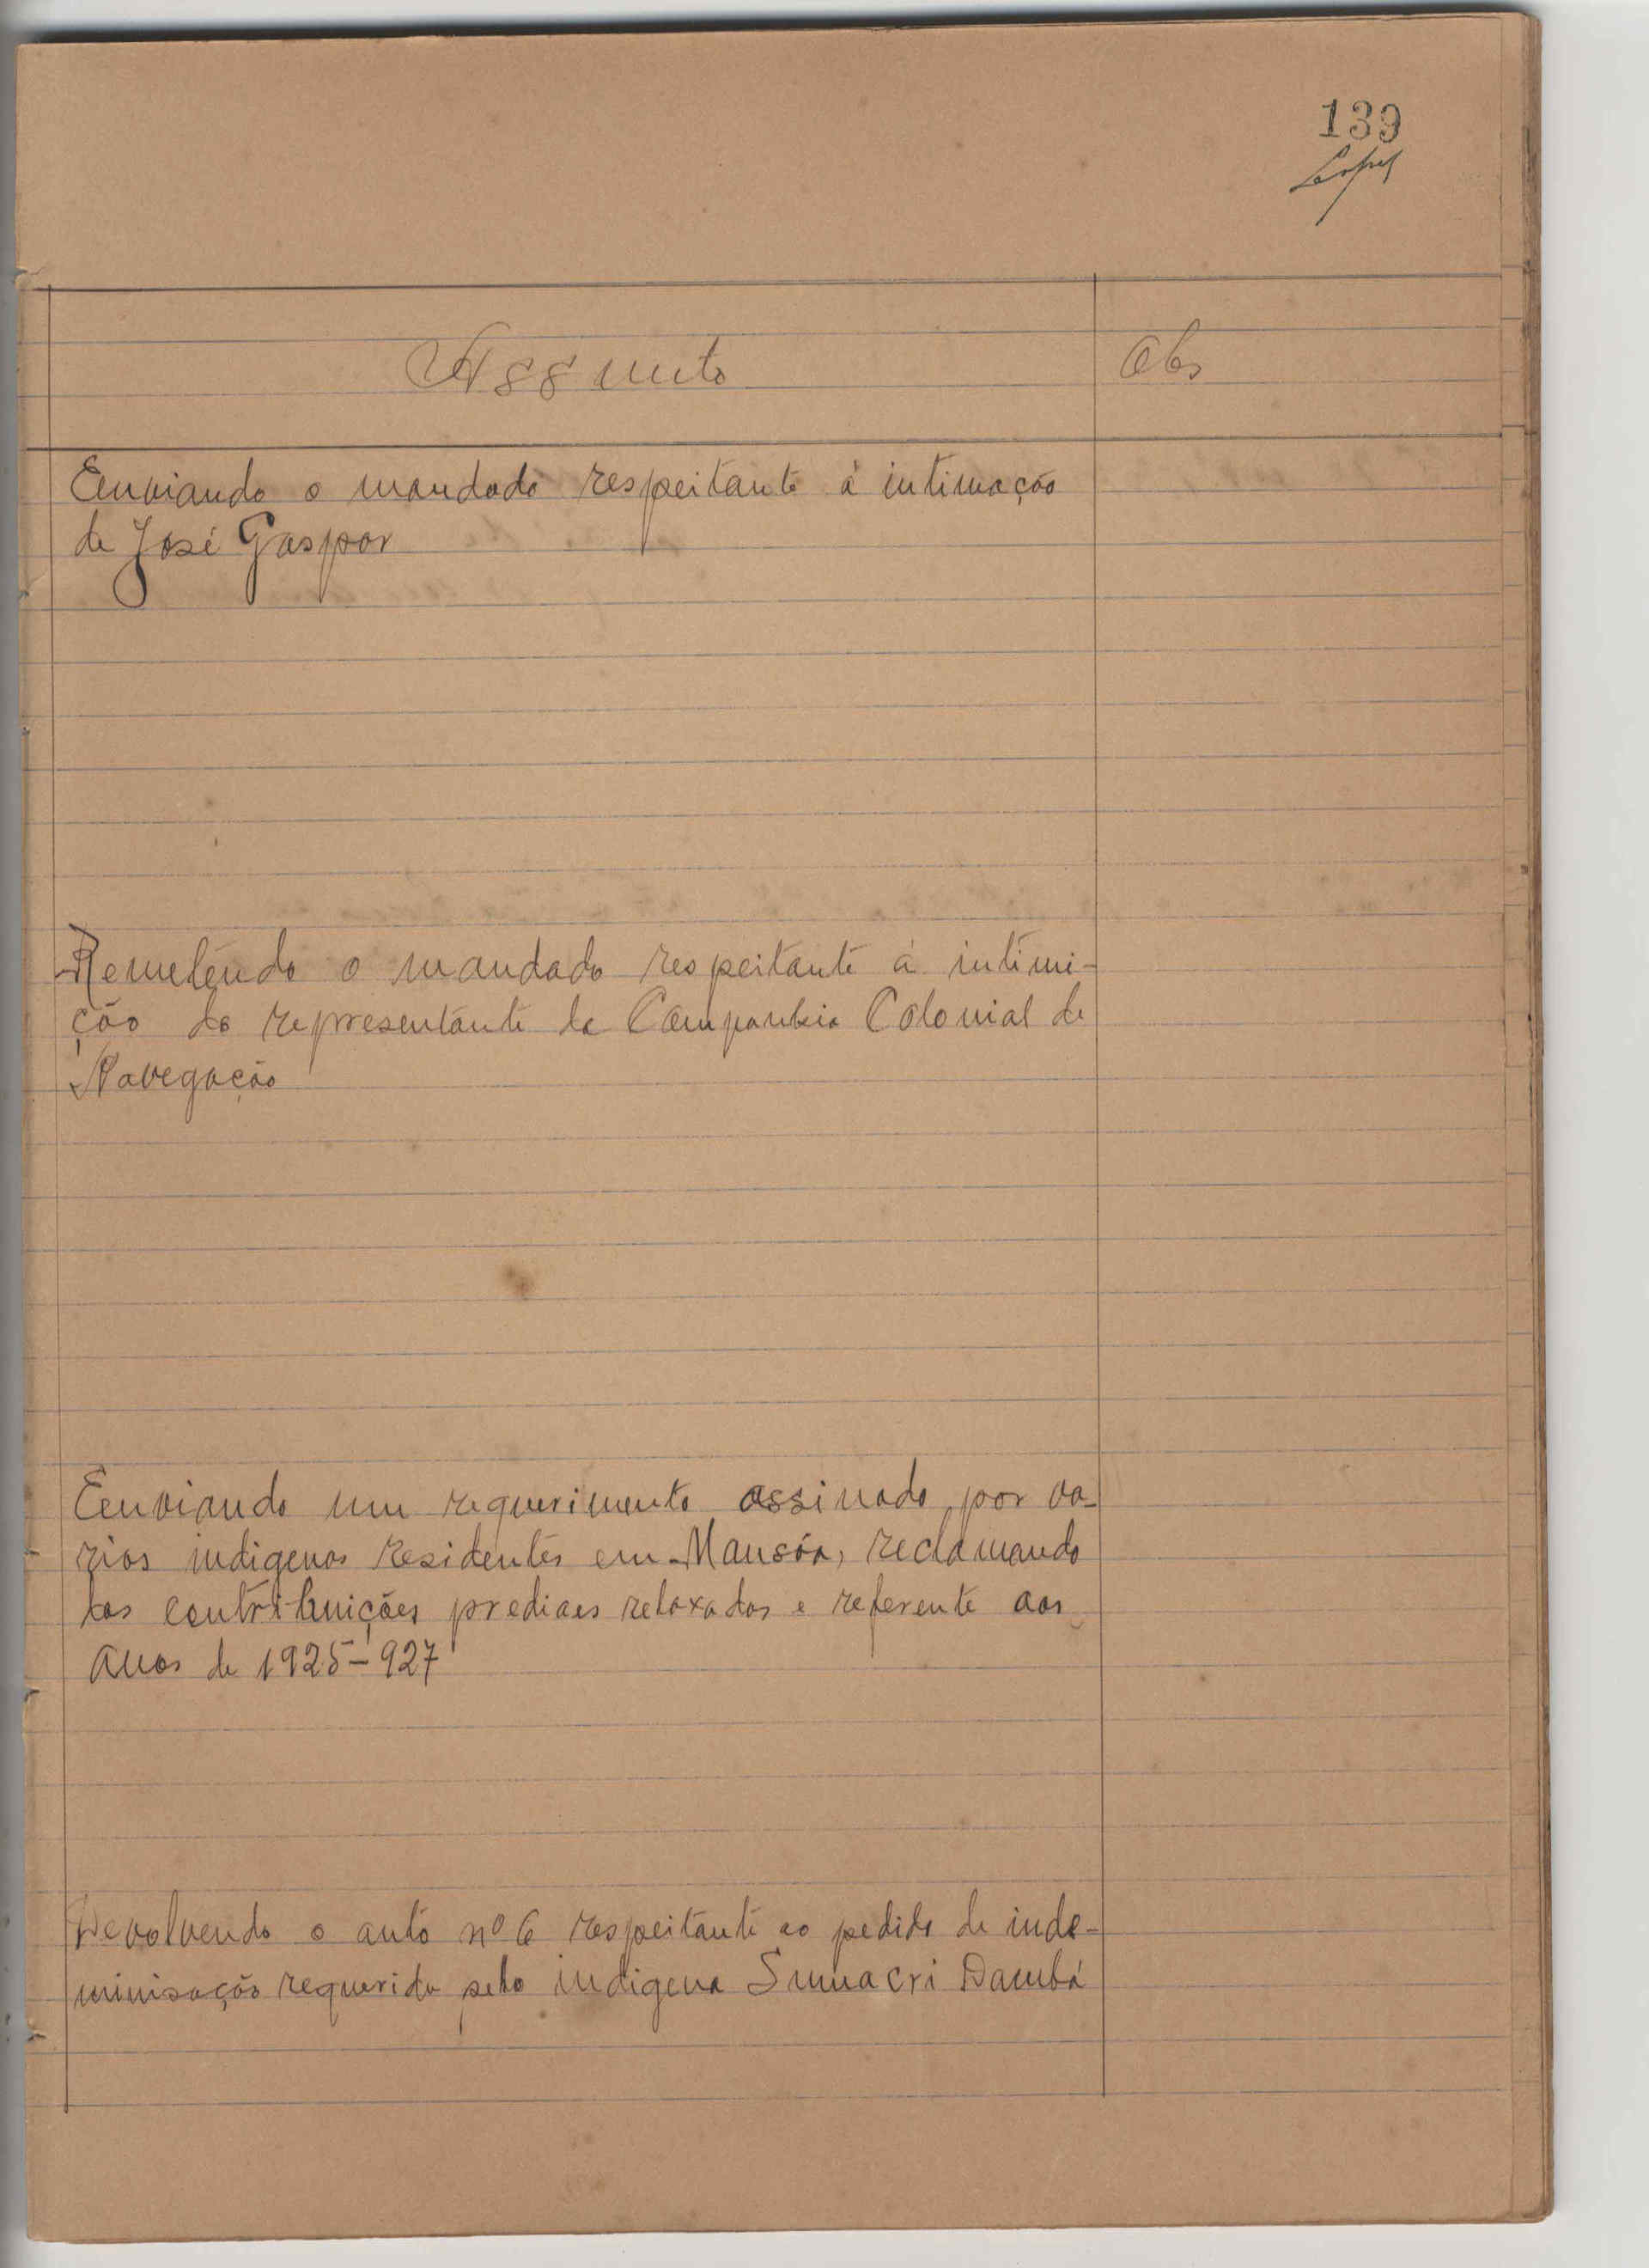 139
Lopes
Assunto
Obs
Enviando o mandado respeitante á intimação
de José Gaspar
Remetendo o mandado respeitante á intimi-
ção do representante da Companhia Colonial de
Navegação
Enviando um requerimento assinado por va-
rios indigenas residentes em Mansôa, reclamando
das contribuições prediaes relaxadas e referente aos
anos de 1925-927
Devolvendo o auto nº 6 respeitante ao pedido de inde-
minisação requerida pelo indigena Sumacri Dambá